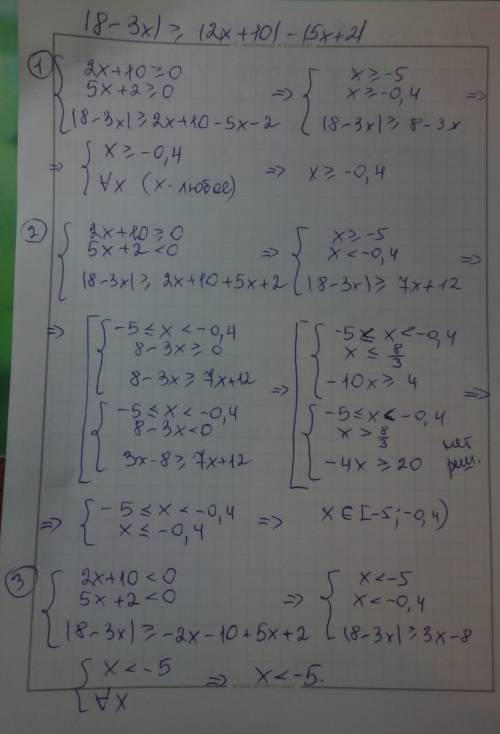 |8-3x| ≥ |2x+10| - |5x+2|
① { 2x+10 ≥ 0 ; 5x+2 ≥ 0 ; |8-3x| ≥ 2x+10-5x-2 => { x ≥ -5 ; x ≥ -0,4 ; |8-3x| ≥ 8-3x =>
=> { x ≥ -0,4 ; ∀x (x-любое) => x ≥ -0,4
② { 2x+10 ≥ 0 ; 5x+2 < 0 ; |8-3x| ≥ 2x+10+5x+2 => { x ≥ -5 ; x < -0,4 ; |8-3x| ≥ 7x+12 =>
=> [ { -5 ≤ x < -0,4 ; 8-3x ≥ 0 ; 8-3x ≥ 7x+12 ; { -5 ≤ x < -0,4 ; 8-3x < 0 ; 3x-8 ≥ 7x+12 => [ { -5 ≤ x < -0,4 ; x ≤ 8/3 ; -10x ≥ 4 ; { -5 ≤ x < -0,4 ; x > 8/3 ; -4x ≥ 20 нет реш. =>
=> { -5 ≤ x < -0,4 ; x ≤ -0,4 => x ∈ [-5; -0,4)
③ { 2x+10 < 0 ; 5x+2 < 0 ; |8-3x| ≥ -2x-10+5x+2 => { x < -5 ; x < -0,4 ; |8-3x| ≥ 3x-8
{ x < -5 ; ∀x => x < -5.